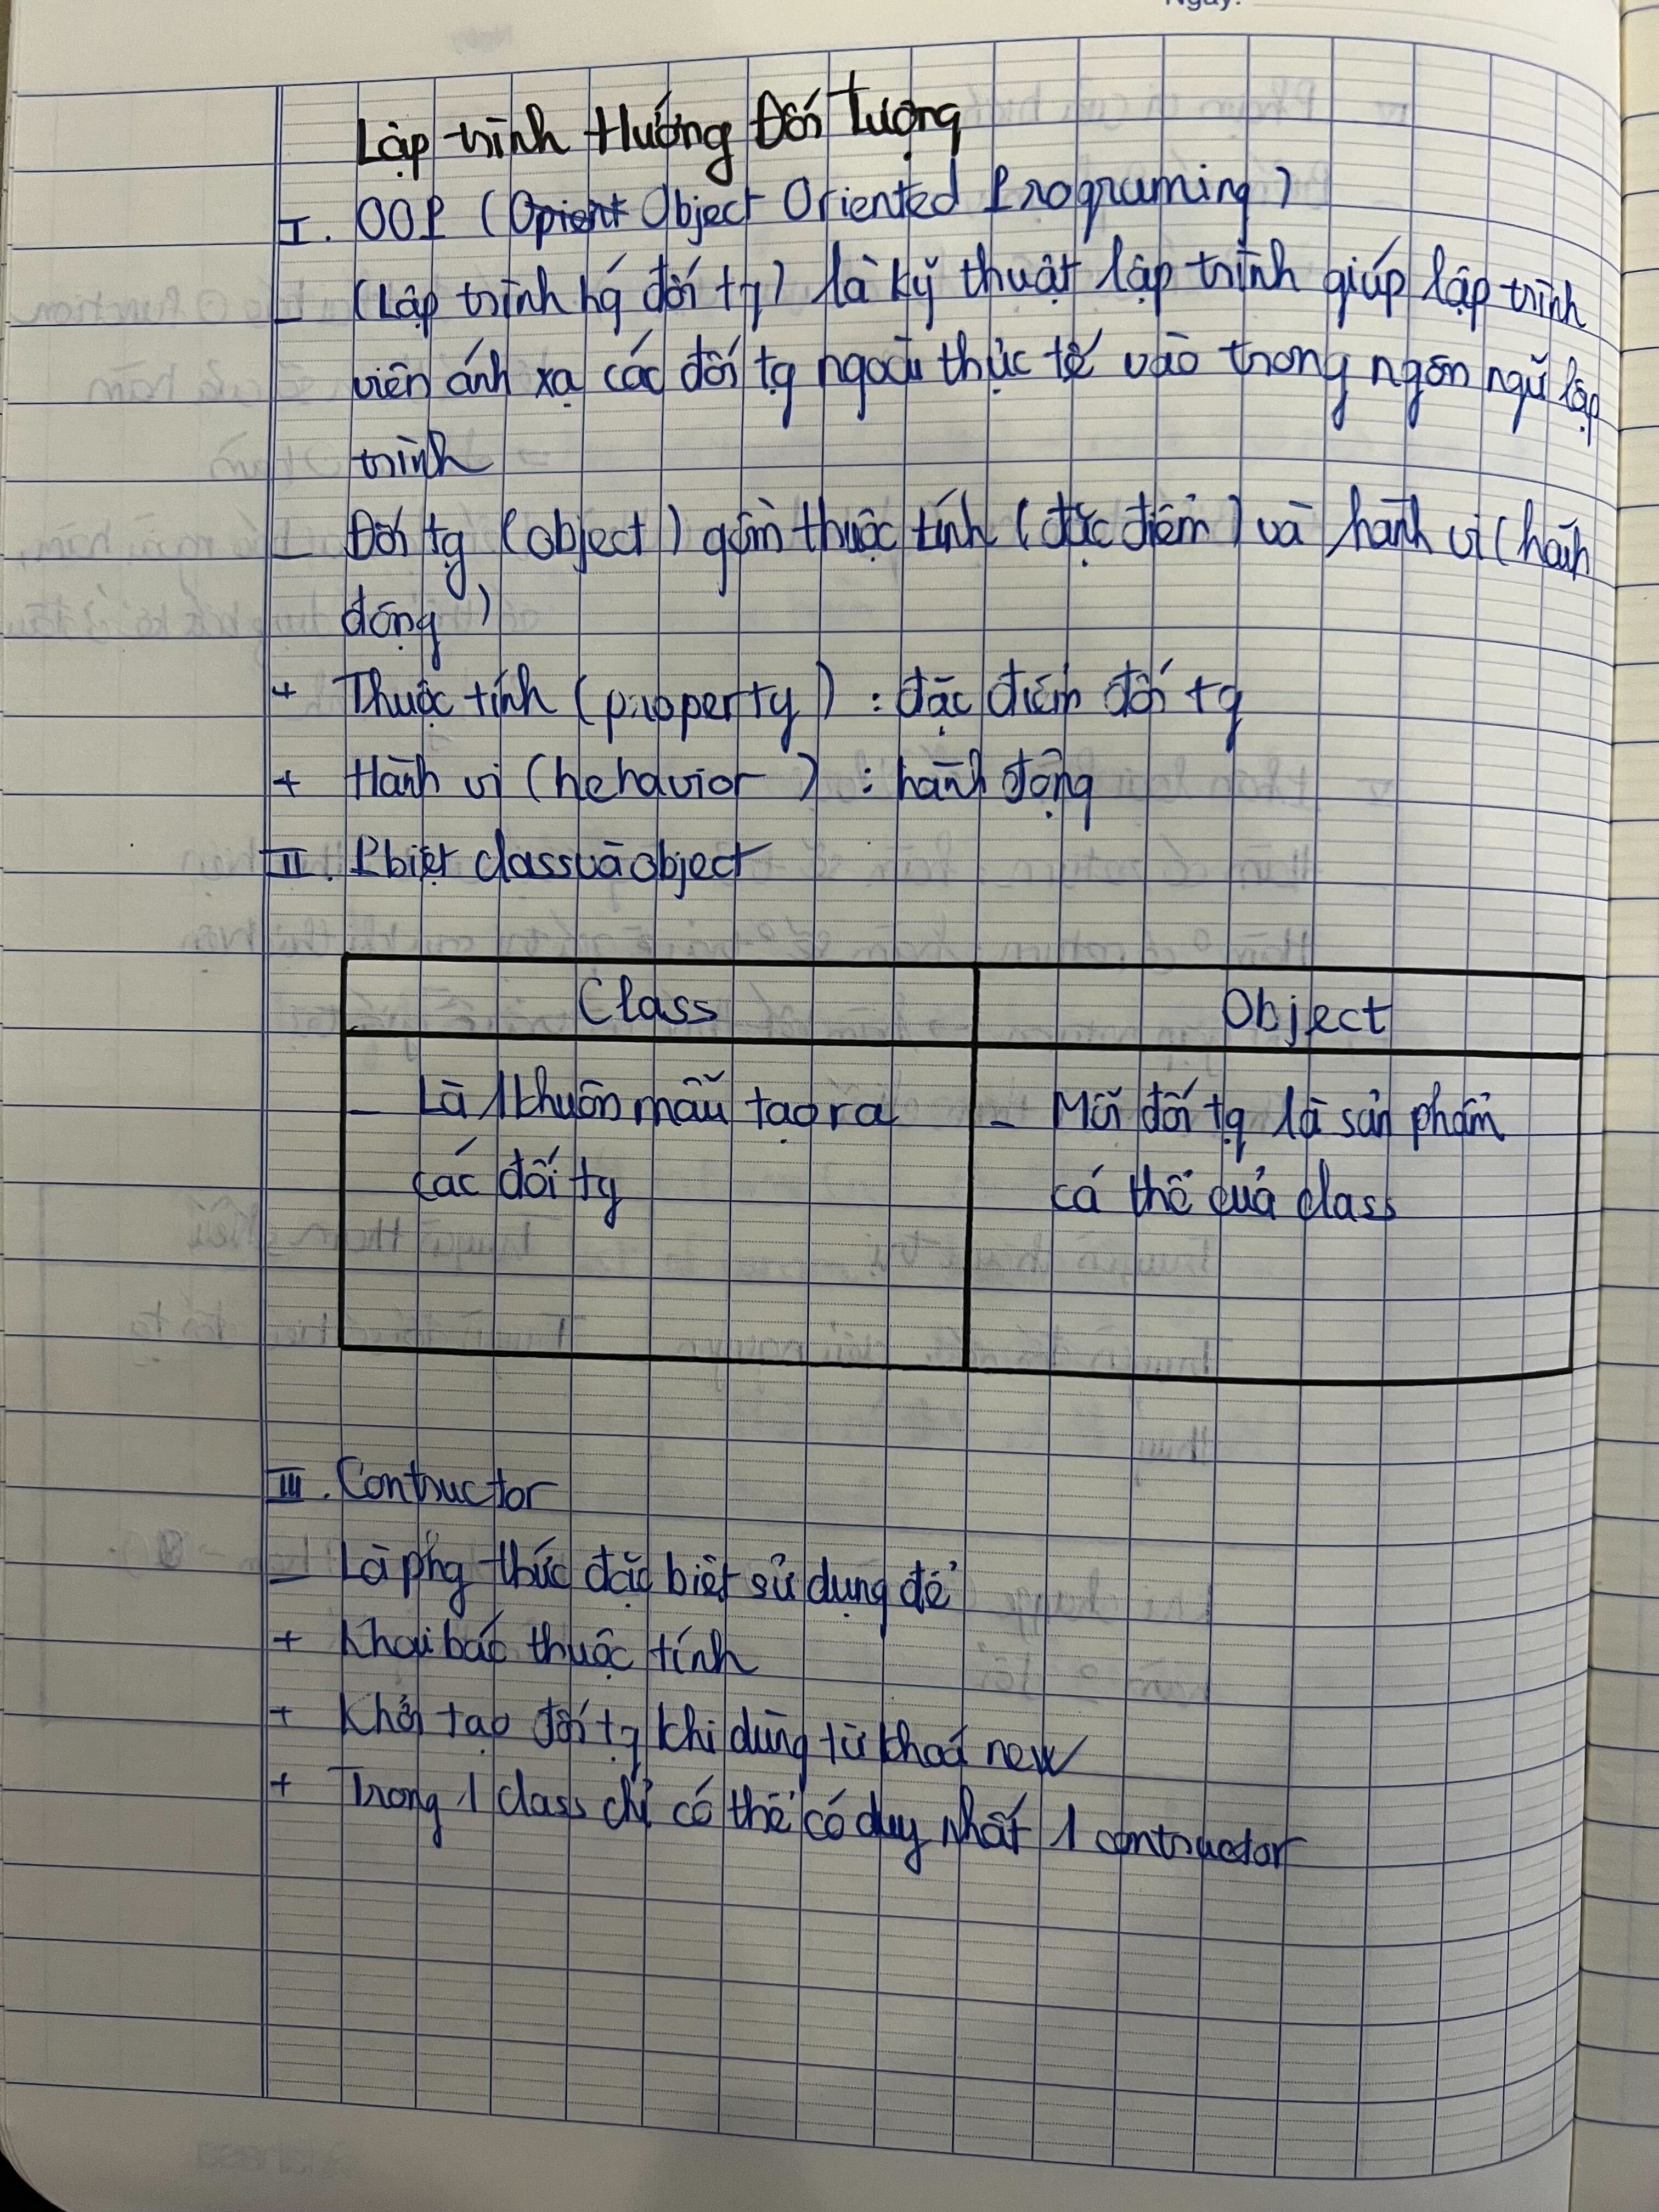 Ngày:
Lập trình Hướng Đối Tượng
I. OOP (Opient Object Oriented Programing)
- (Lập trình hg đối tg) là kỹ thuật lập trình giúp lập trình
viên ánh xạ các đối tg ngoài thực tế vào trong ngôn ngữ lập
trình
- Đối tg (object) gồm thuộc tính (đặc điểm) và hành vi (hành
động)
+ Thuộc tính (property) : đặc điểm đối tg
+ Hành vi (behavior) : hành động
II. Pbiệt class và object
Class
Object
- Là 1 khuôn mẫu tạo ra
các đối tg
- Mỗi đối tg là sản phẩm
cá thể của class
III. Contructor
- Là phg thức đặc biệt sử dụng để
+ Khai báo thuộc tính
+ Khởi tạo đối tg khi dùng từ khoá new
+ Trong 1 class chỉ có thể có duy nhất 1 contructor